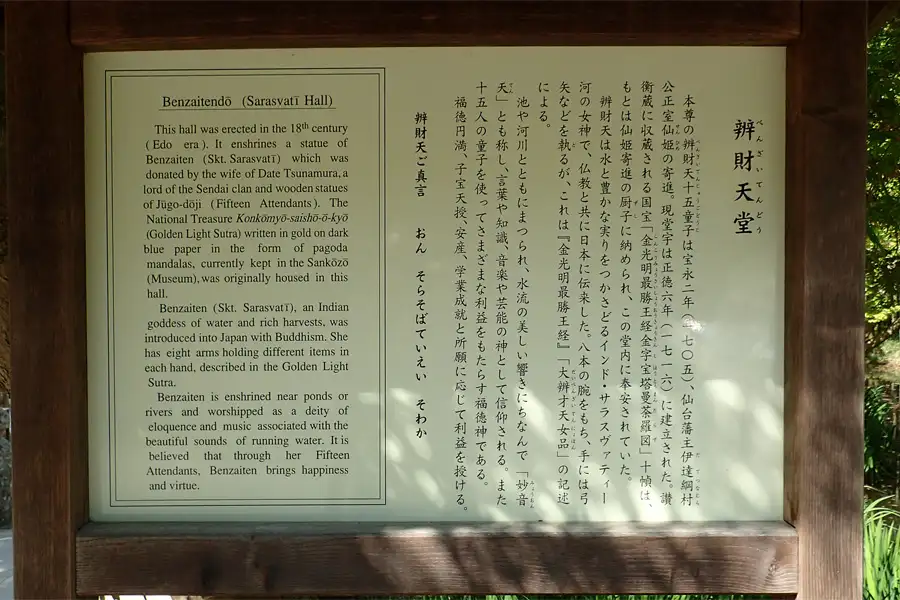 Benzaitendō (Sarasvatī Hall)
This hall was erected in the 18th century
(Edo era). It enshrines a statue of
Benzaiten (Skt. Sarasvatī) which was
donated by the wife of Date Tsunamura, a
lord of the Sendai clan and wooden statues
of Jūgo-dōji (Fifteen Attendants). The
National Treasure Konkōmyō-saishō-ō-kyō
(Golden Light Sutra) written in gold on dark
blue paper in the form of pagoda
mandalas, currently kept in the Sankōzō
(Museum), was originally housed in this
hall.
Benzaiten (Skt. Sarasvatī), an Indian
goddess of water and rich harvests, was
introduced into Japan with Buddhism. She
has eight arms holding different items in
each hand, described in the Golden Light
Sutra.
Benzaiten is enshrined near ponds or
rivers and worshipped as a deity of
eloquence and music associated with the
beautiful sounds of running water. It is
believed that through her Fifteen
Attendants, Benzaiten brings happiness
and virtue.
辨財天堂
べんざいてんどう
本尊の辨財天十五童子は宝永二年(一七〇五)、仙台藩主伊達綱村
公正室仙姫の寄進。現堂宇は正徳六年(一七一六)に建立された。讃
衡蔵に収蔵される国宝「金光明最勝王経金字宝塔曼荼羅図」十幀は、
もとは仙姫寄進の厨子に納められ、この堂内に奉安されていた。
辨財天は水と豊かな実りをつかさどるインド・サラスヴァティー
河の女神で、仏教と共に日本に伝来した。八本の腕をもち、手には弓
矢などを執るが、これは『金光明最勝王経』「大辨才天女品」の記述
による。
池や河川とともにまつられ、水流の美しい響きにちなんで「妙音
天」とも称し、言葉や知識、音楽や芸能の神として信仰される。また
十五人の童子を使ってさまざまな利益をもたらす福徳神である。
福徳円満、子宝天授、安産、学業成就と所願に応じて利益を授ける。
辨財天ご真言 おん そらそばていえい そわか